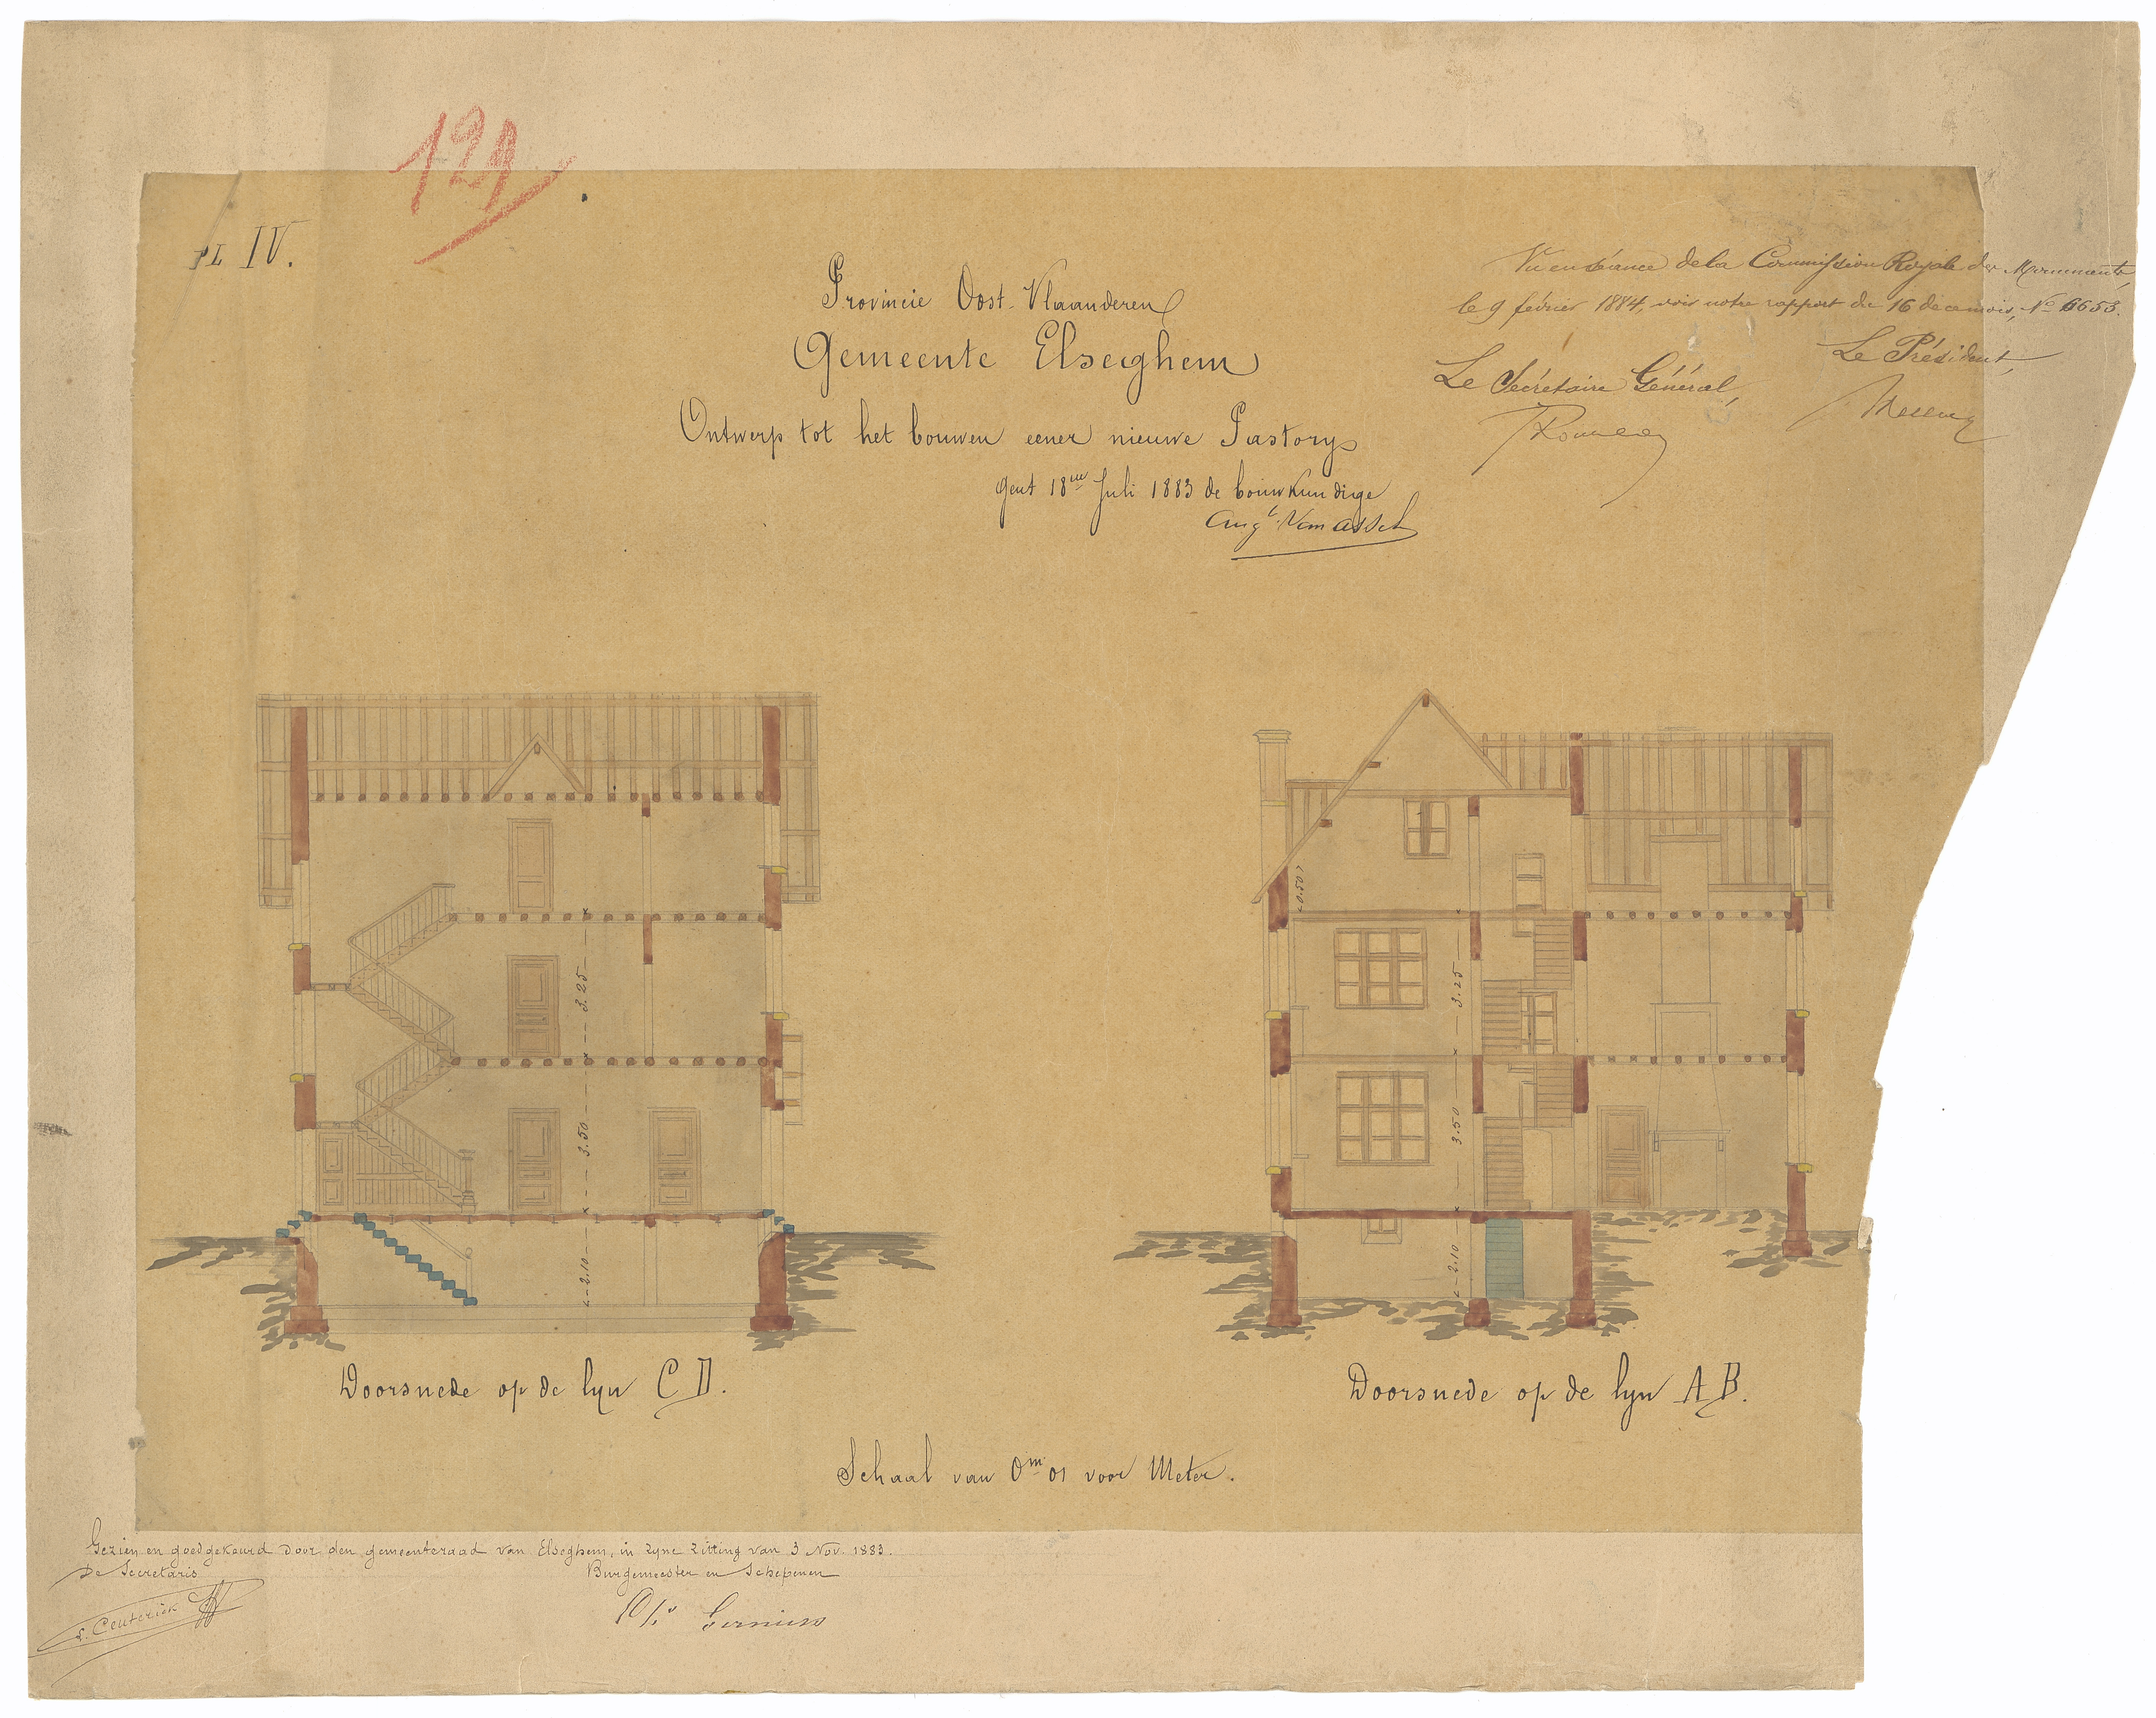 129
PL IV.
Provincie Oost-Vlaanderen
Gemeente Elseghem
Ontwerp tot het bouwen eener nieuwe Pastory
Gent 18en Juli 1883 de bouwkundige
Augt. Van Assche
Vu en séance de la Commission Royale des Monuments,
le 9 février 1884, voir notre rapport du 16 décembre, No 6653.
Le Président,
Le Secrétaire Général,
0.50
3.25
3.50
2.10
3.25
3.50
2.10
Doorsnede op de lyn C D.
Doorsnede op de lyn A B.
Schaal van 0m01 voor Meter.
Gezien en goedgekeurd door den gemeenteraad van Elseghem, in zyne zitting van 3 Nov. 1883.
De Secretaris
Burgemeester en Schepenen
Ceuterick